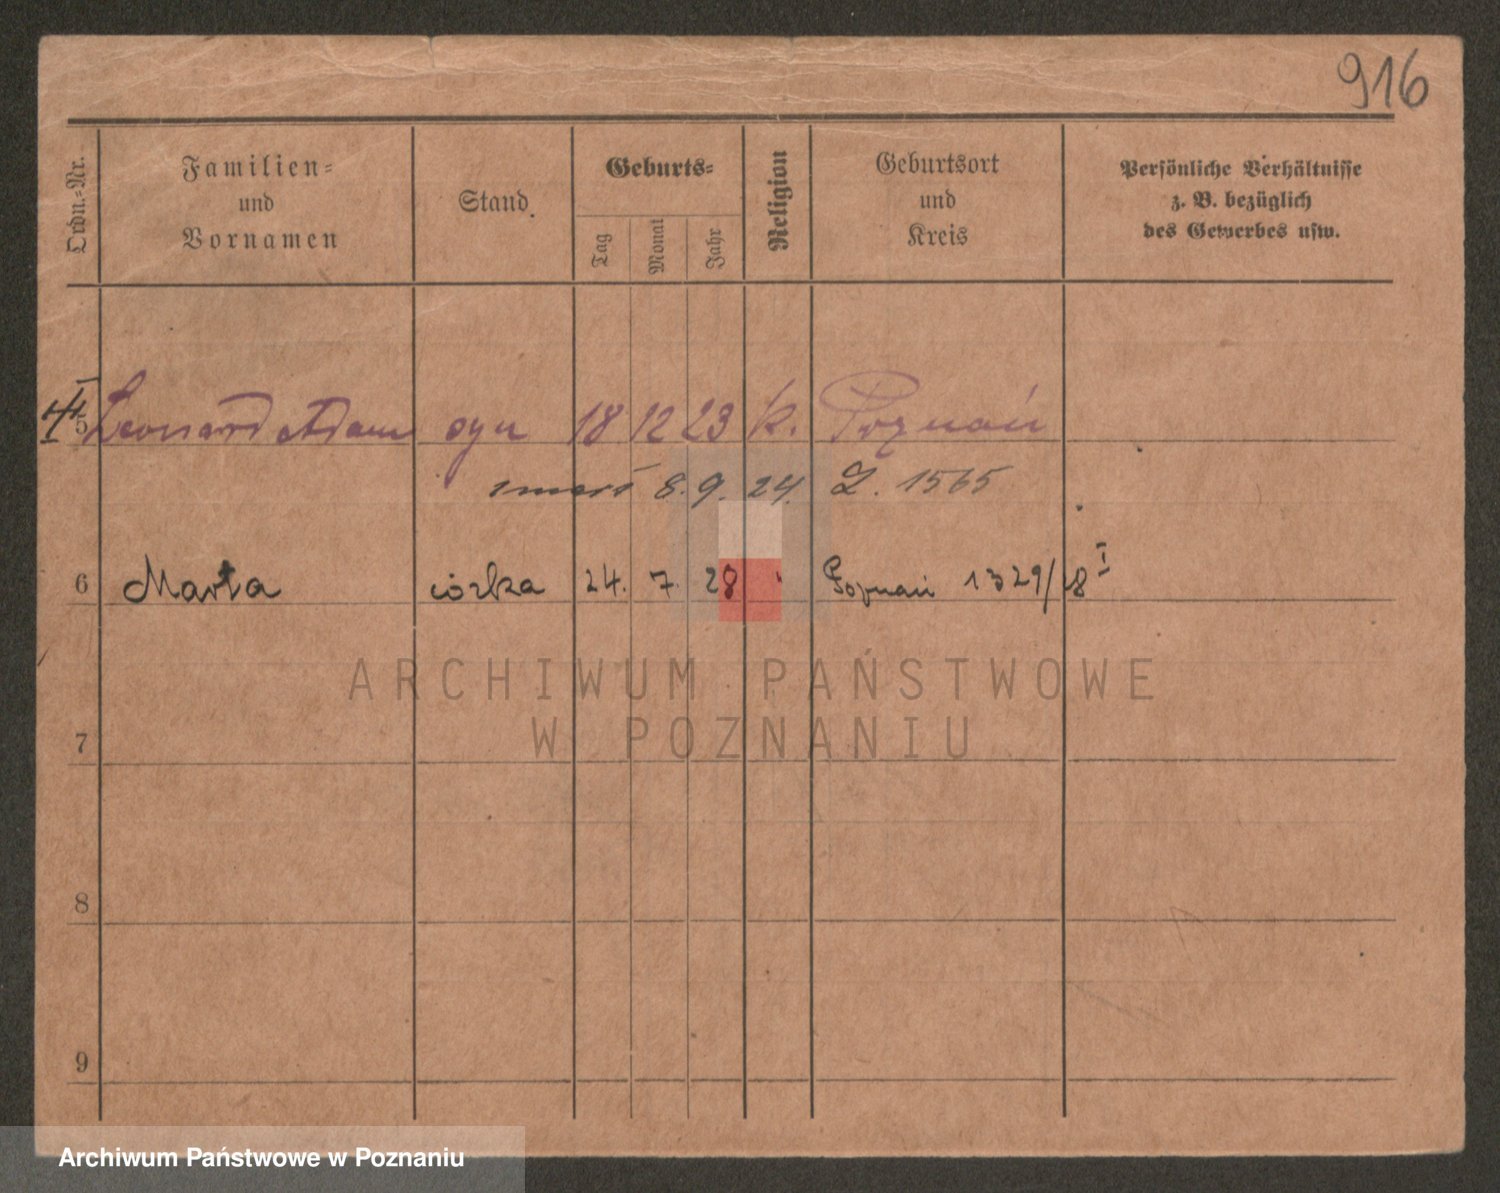 916
Ordn.-Nr.
Familien-
und
Vornamen
Stand
Geburts-
Tag Monat Jahr
Religion
Geburtsort
und
Kreis
Persönliche Verhältnisse
z. B. bezüglich
des Gewerbes usw.
5 Leonard Adam syn 18 12 23 k. Poznań
zmarł 8. 9. 24. L. 1565
6 Marta córka 24. 7. 28 " Poznań 1329/28 I
ARCHIWUM PAŃSTWOWE
W POZNANIU
7
8
9
Archiwum Państwowe w Poznaniu